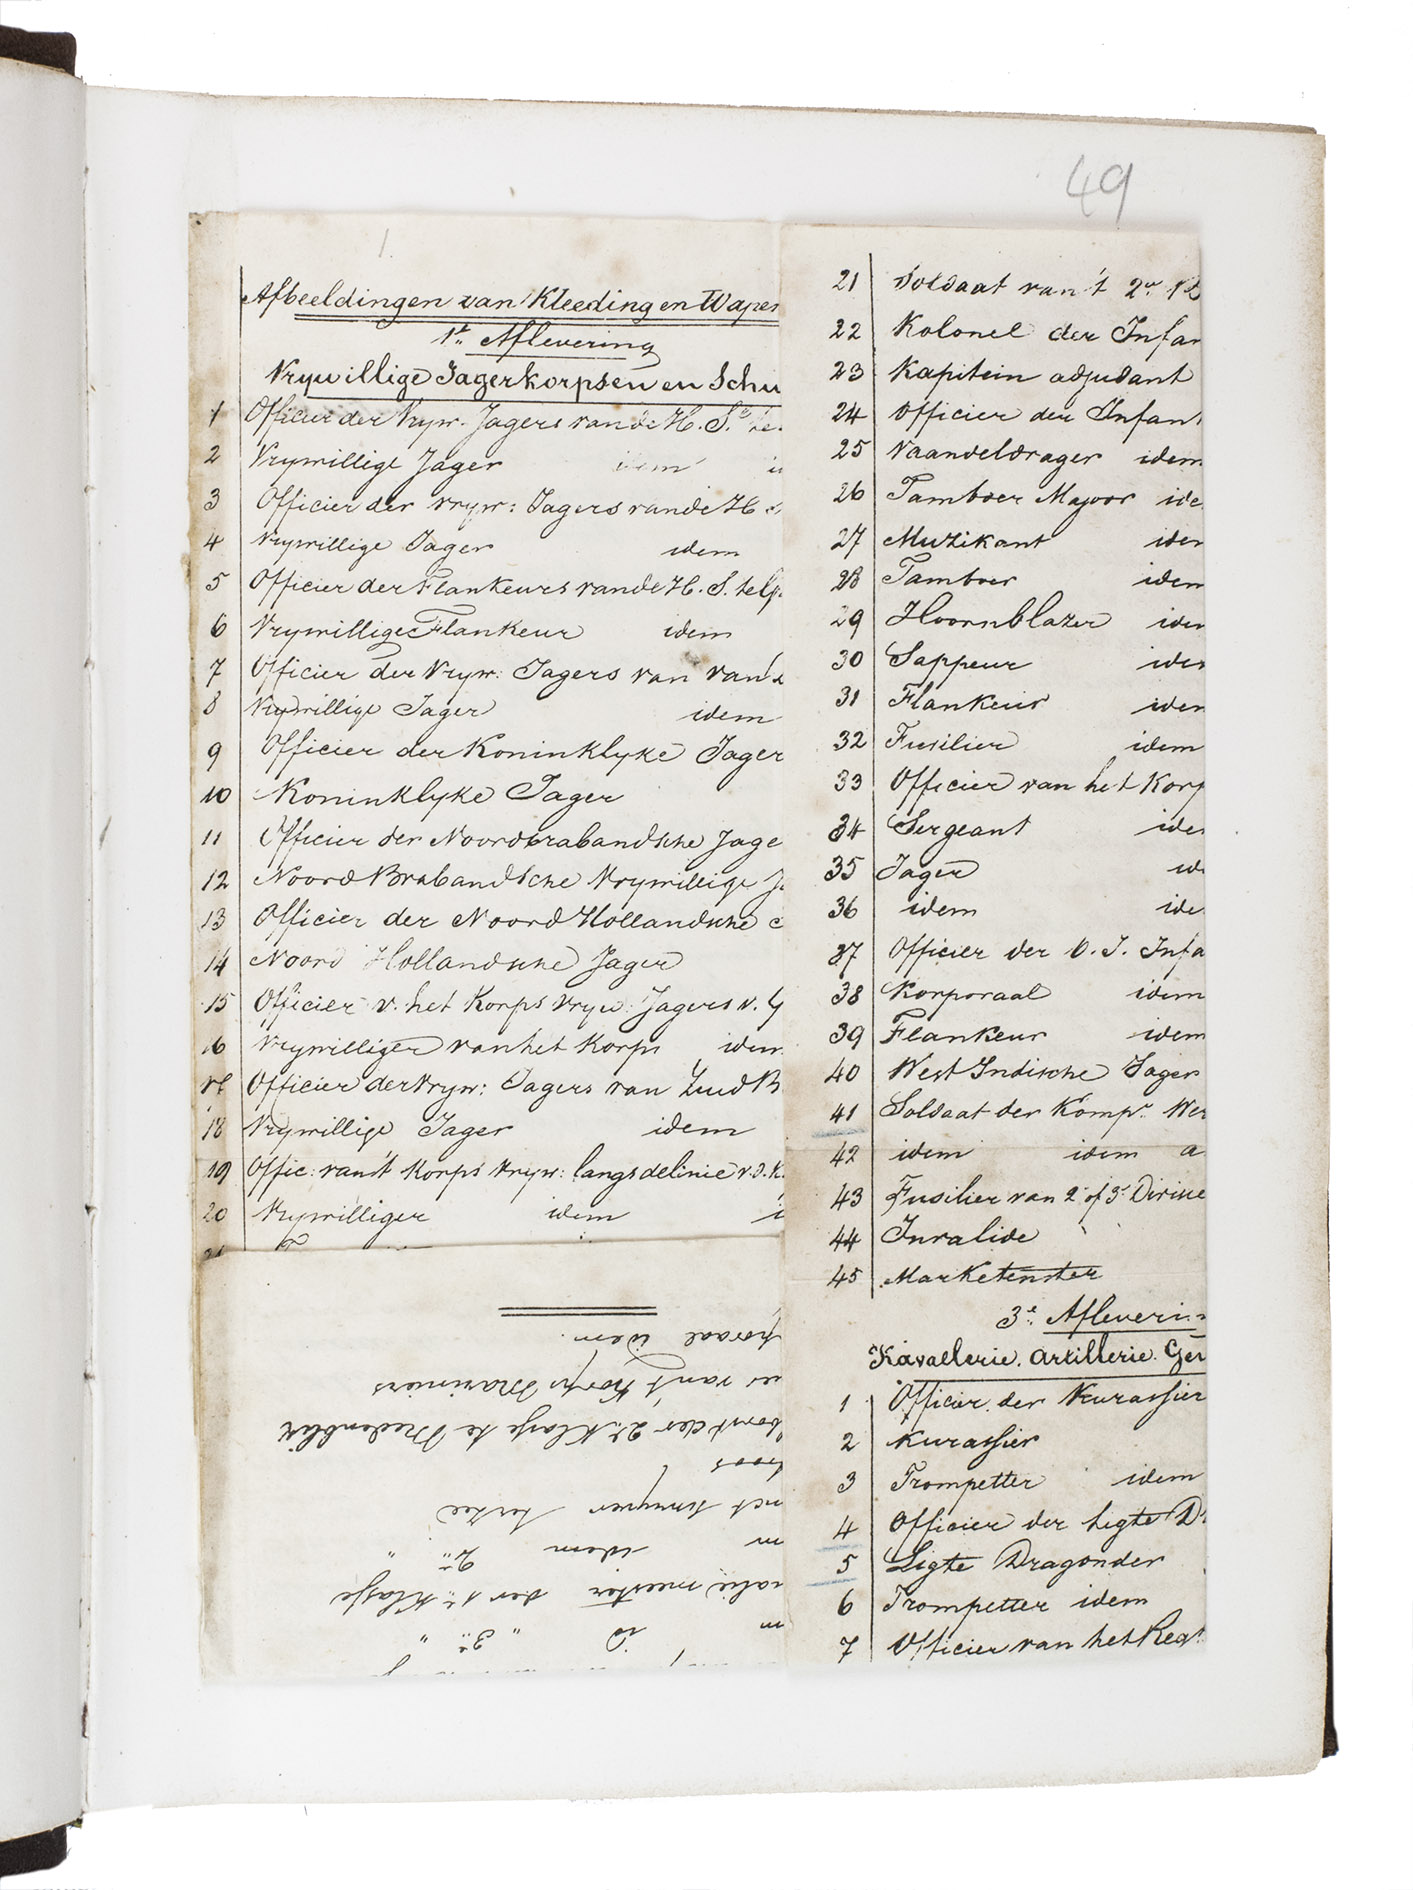 49
1.
Afbeeldingen van Kleeding en Wapen
1e Aflevering
Vrywillige Jagerkorpsen en Schu
1 Officier der Vryw. Jagers van de H. S.
2 Vrywillige Jager idem
3 Officier der vryw: Jagers van de H
4 Vrywillige Jager idem
5 Officier der Flankeurs van de H. S. te
6 Vrywillige Flankeur idem
7 Officier der Vryw: Jagers van van
8 Vrywillige Jager idem
9 Officier der Koninklyke Jager
10 Koninklyke Jager
11 Officier der Noordbrabandsche Jage
12 Noord Brabandsche Vrywillige J
13 Officier der Noord Hollandsche
14 Noord Hollandsche Jager
15 Officier v. het Korps vryw. Jagers v.
16 Vrywilliger van het Korps idem
17 Officier der vryw: Jagers van Zuid B
18 Vrywillige Jager idem
19 Offic: van 't Korps vryw: langs de linie v. d.
20 Vrywilliger idem i
21
21 Soldaat van 't 2e
22 Kolonel der Infan
23 Kapitein adjudant
24 Officier der Infan
25 Vaandeldrager idem
26 Tamboer Majoor ide
27 Muzikant idem
28 Tamboer idem
29 Hoornblazer idem
30 Sappeur idem
31 Flankeur idem
32 Fusilier idem
33 Officier van het Korp
34 Sergeant ide
35 Jager id
36 idem ide
37 Officier der O. I. Infa
38 Korporaal idem
39 Flankeur idem
40 West Indische Jager
41 Soldaat der Kompe. Wes
42 idem idem a
43 Fusilier van 2e of 3e Divisie
44 Invalide
45 Marketenster
3e. Aflevering
Kavallerie. Artillerie. Gen
1 Officier der Kurassier
2 Kurassier
3 Trompetter idem
4 Officier der Ligte Dr
5 Ligte Dragonder
6 Trompetter idem
7 Officier van het Regt
m id " 3e "
meester der 1e Klasse
m idem 2e "
net
der 2e Klasse te Medenblik
van 't Korps Mariniers
poraal idem.